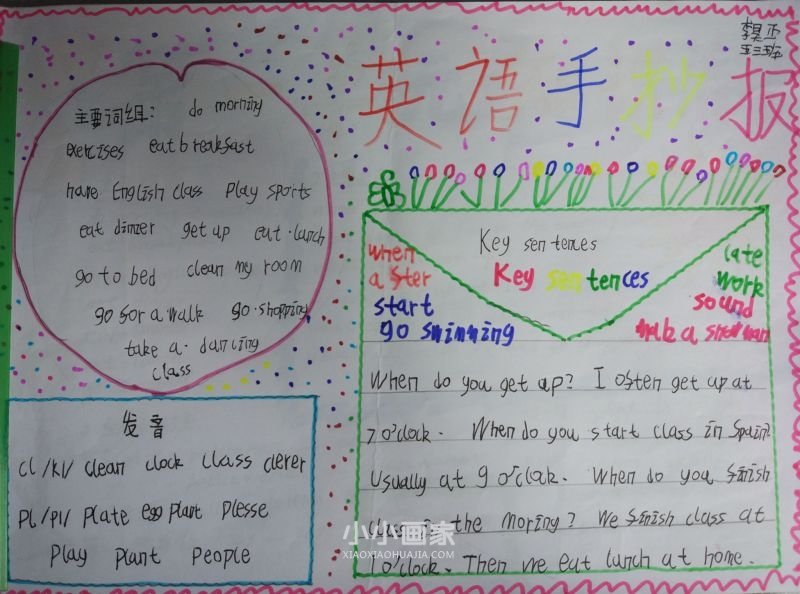 英语手抄报
五三班
主要词组: do morning
exercises eat breakfast
have English class play sports
eat dinner get up eat·lunch
go to bed clean my room
go for a walk go·shopping
take a·dancing
class
发音
cl /kl/ clean clock class clever
pl /pl/ plate eggplant plesse
play plant people
Key sentences
Key sentences
when
after
start
go swimming
late
work
sound
When do you get up? I often get up at
7 o'clock. When do you start class in Spain?
Usually at 9 o'clock. When do you finish
class in the moring? We finish class at
1 o'clock. Then we eat lunch at home.
小小画家
XIAOXIAOHUAJIA.COM